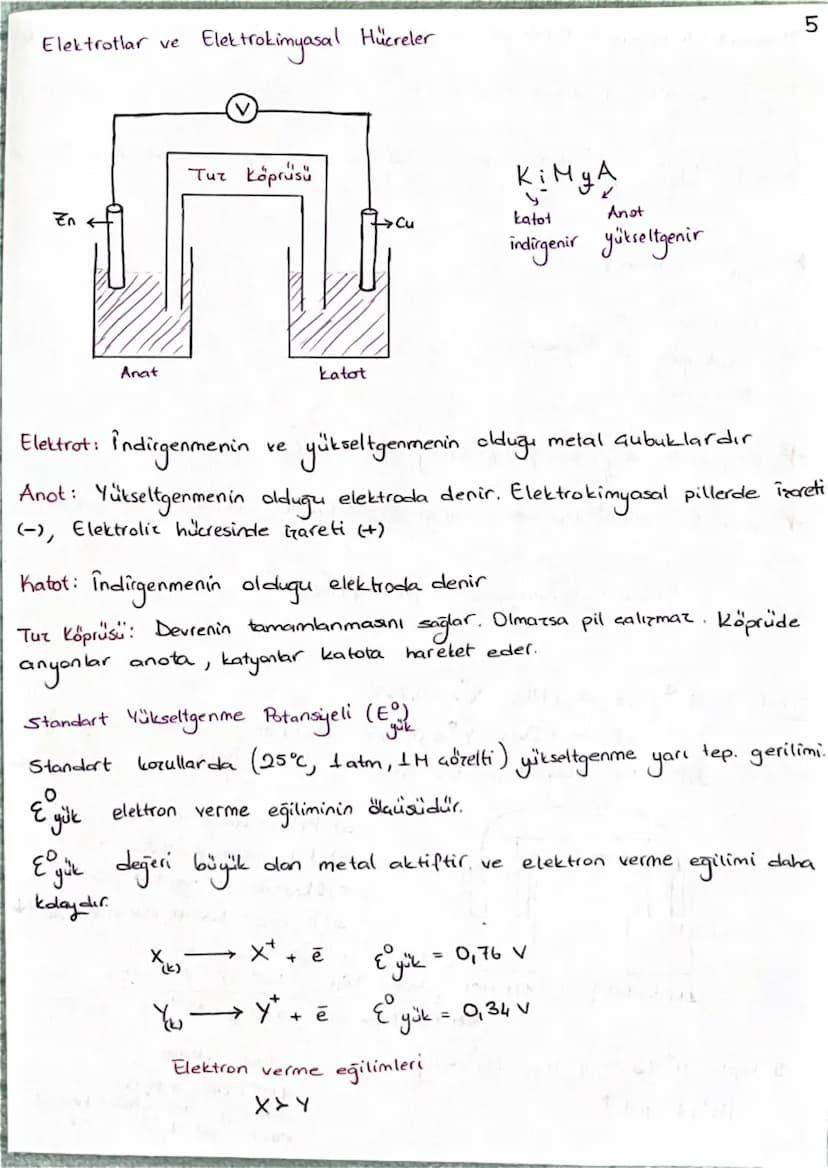 5
Elektrotlar ve Elektrokimyasal Hücreler
V
Tuz Köprüsü
Zn
Cu
Anat
Katot
KiMyA
katot
indirgenir
Anot
yükseltgenir
Elektrot: İndirgenmenin ve yükseltgenmenin olduğu metal çubuklardır
Anot: Yükseltgenmenin olduğu elektroda denir. Elektrokimyasal pillerde işareti
(-), Elektroliz hücresinde işareti (+)
Katot: İndirgenmenin olduğu elektroda denir
Tuz Köprüsü: Devrenin tamamlanmasını sağlar. Olmazsa pil çalışmaz. Köprüde
anyonlar anota, katyonlar katota hareket eder.
Standart Yükseltgenme Potansiyeli (E°yük)
Standart koşullarda (25°C, 1 atm, 1M çözelti) yükseltgenme yarı tep. gerilimi.
E°yük elektron verme eğiliminin ölçüsüdür.
E°yük değeri büyük olan metal aktiftir. ve elektron verme eğilimi daha
kolaydır.
X(k) → X⁺ + ē E°yük = 0,76 V
Y(k) → Y⁺ + ē E°yük = 0,34 V
Elektron verme eğilimleri
X>Y